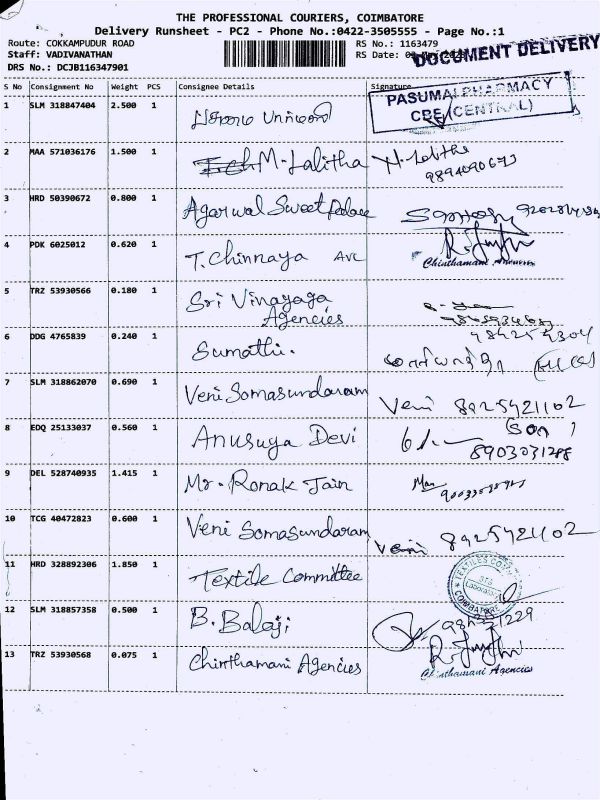 THE PROFESSIONAL COURIERS, COIMBATORE
Delivery Runsheet - PC2 - Phone No.:0422-3505555 - Page No.:1
Route: COKKAMPUDUR ROAD RS No.: 1163479
Staff: VADIVANATHAN RS Date:
DRS No.: DCJB116347901
DOCUMENT DELIVERY
S No Consignment No Weight PCS Consignee Details Signature
PASUMAI PHARMACY
CBE (CENTRAL)
1 SLM 318847404 2.500 1
2 MAA 571036176 1.500 1 M. Lalitha
3 HRD 50390672 0.800 1 Agarwal Sweet Palace
4 PDK 6025012 0.620 1 T. Chinnaya AVL
Chinthamani Agencies
5 TRZ 53930566 0.180 1 Sri Vinayaga
Agencies
6 DDG 4765839 0.240 1 Sumathi.
7 SLM 318862070 0.690 1 Veni Somasundaram Veni 8925421102
8 EDQ 25133037 0.560 1 Anusuya Devi Son
8903031288
9 DEL 528740935 1.415 1 Mr. Ronak Jain
10 TCG 40472823 0.600 1 Veni Somasundaram Veni 8925421102
11 HRD 328892306 1.850 1 Textile Committee
COIMBATORE
12 SLM 318857358 0.500 1 B. Balaji
13 TRZ 53930568 0.075 1 Chinthamani Agencies
Chinthamani Agencies